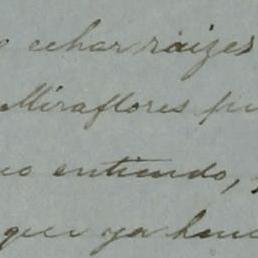 echar raizes
Miraflores
entiendo,
que ya